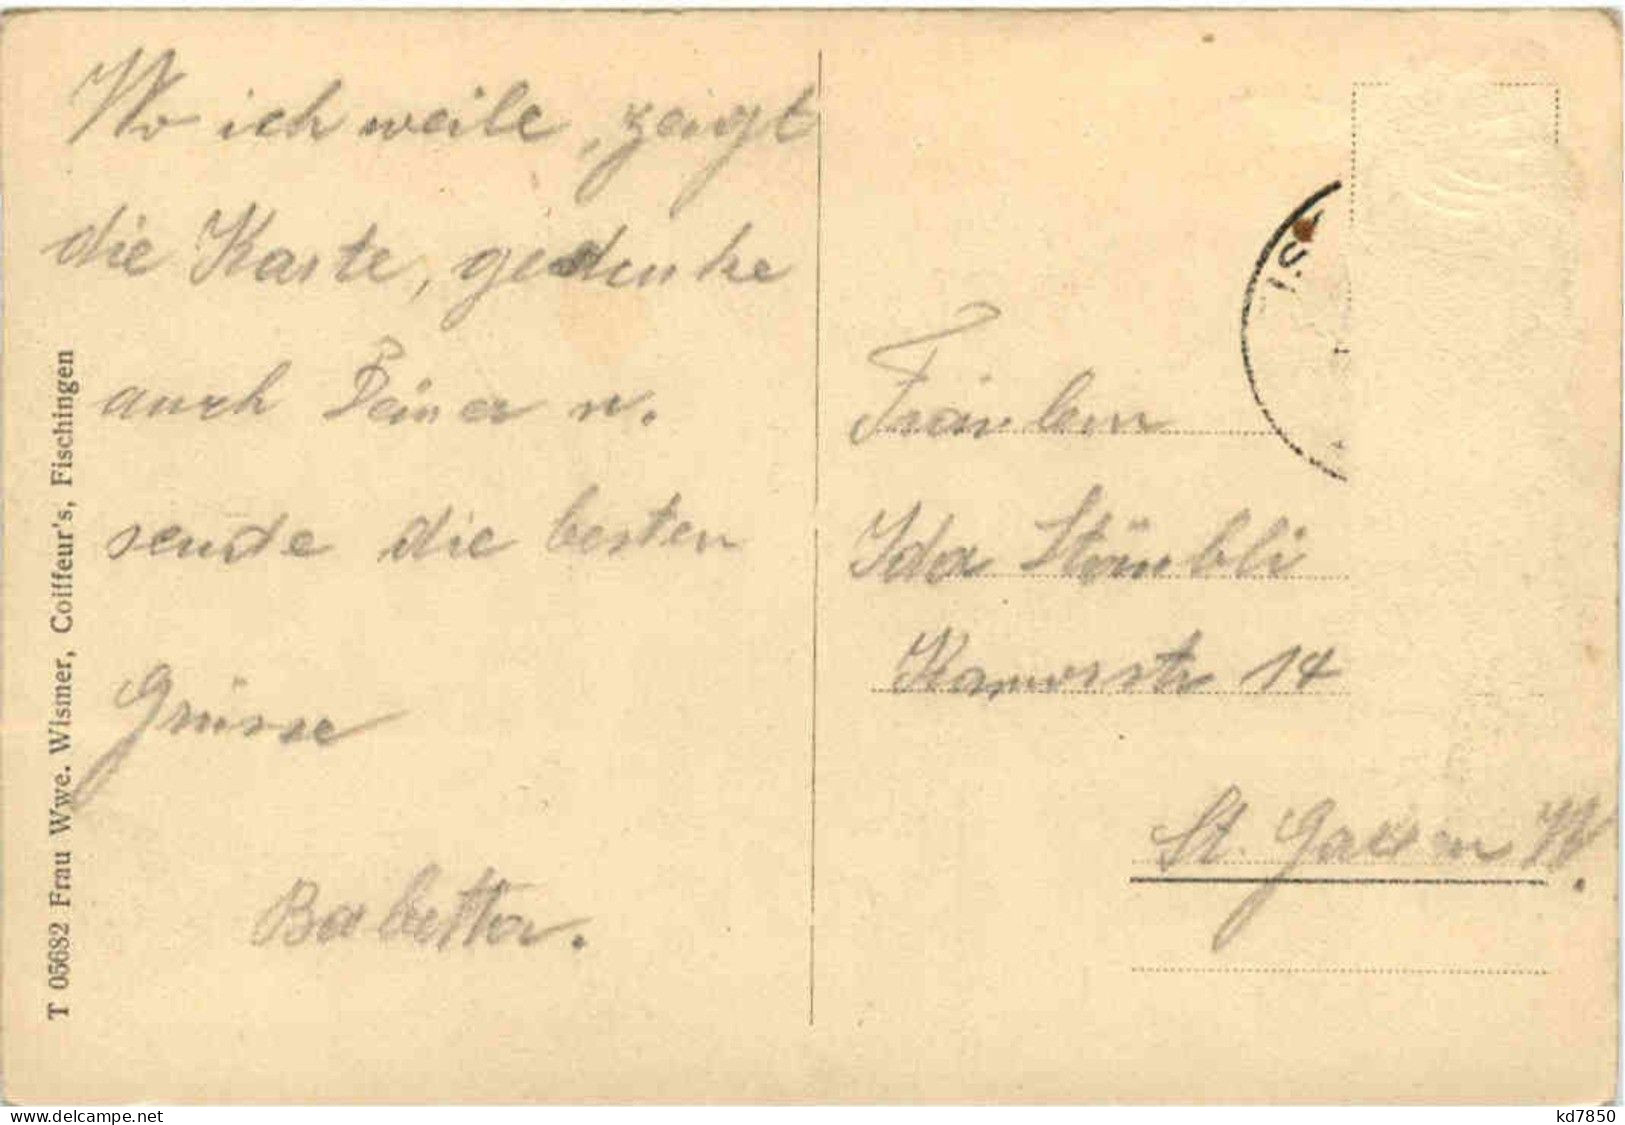 Wo ich weile, zeigt
die Karte, gedenke
auch Deiner u.
sende die besten
Grüsse
Babetta.
T 05682 Frau Wwe. Wismer, Coiffeur's, Fischingen
Fräulein
Ida Stäubli
Kamorstr 14
St. Gallen W.
www.delcampe.net
kd7850